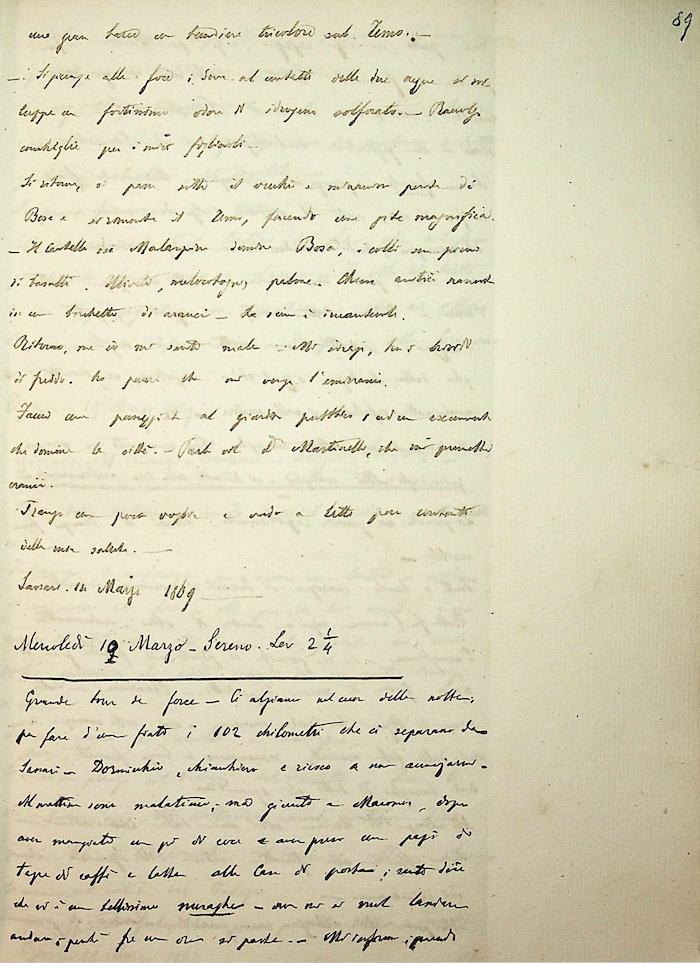 89
una gran barca con bandiera tricolore sul Temo. —
— Si giunge alla foce e dove al contatto delle due acque si svi
luppa un fortissimo odore di idrogeno solforato. — Raccolgo
conchiglie per i miei figliuoli —
Si ritorna, si passa sotto il vecchio e minaccioso ponte di
Bosa e si rimonta il Temo, facendo una gita magnifica.
— Il Castello dei Malaspina domina Bosa, i colli sono
di basalti. Uliveti, melocotogni, palme. Chiese
in un boschetto di aranci — La scena è incantevole.
Ritorno, ma io mi sento male — ho i brividi
di freddo. ho paura che mi venga l'emicrania.
Faccio una passeggiata al giardino pubblico,
che domina la città. — Parlo col Dr Martinelli, che mi promette
crani.
Pranzo con poca voglia e vado a letto poco contento
della mia salute. —
Sassari. Marzo 1869
Mercoledì 10 Marzo — Sereno. Lev 2 1/4
Grande tour de force — Ci alziamo nel cuor della notte,
per fare d'un fiato i 102 chilometri che ci separano da
Sassari — Dormicchio, chiacchiero e riesco a non annojarmi —
Mantinn sono malaticcio; ma giunto a Macomer, dopo
aver mangiato un po' di e aver preso un pajo di
tazze di caffè e latte alla Casa di posta, sento dire
che vi è un bellissimo nuraghe —
andare, perché fra un'ora si parte. — M'informo,